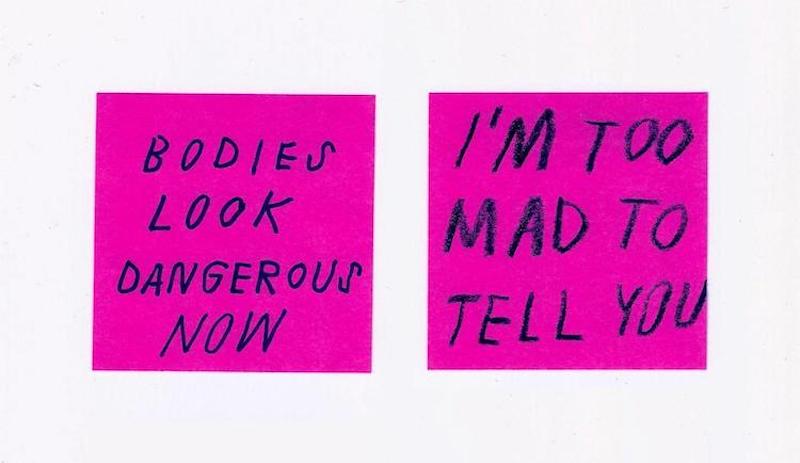 BODIES
LOOK
DANGEROUS
NOW
I'M TOO
MAD TO
TELL YOU